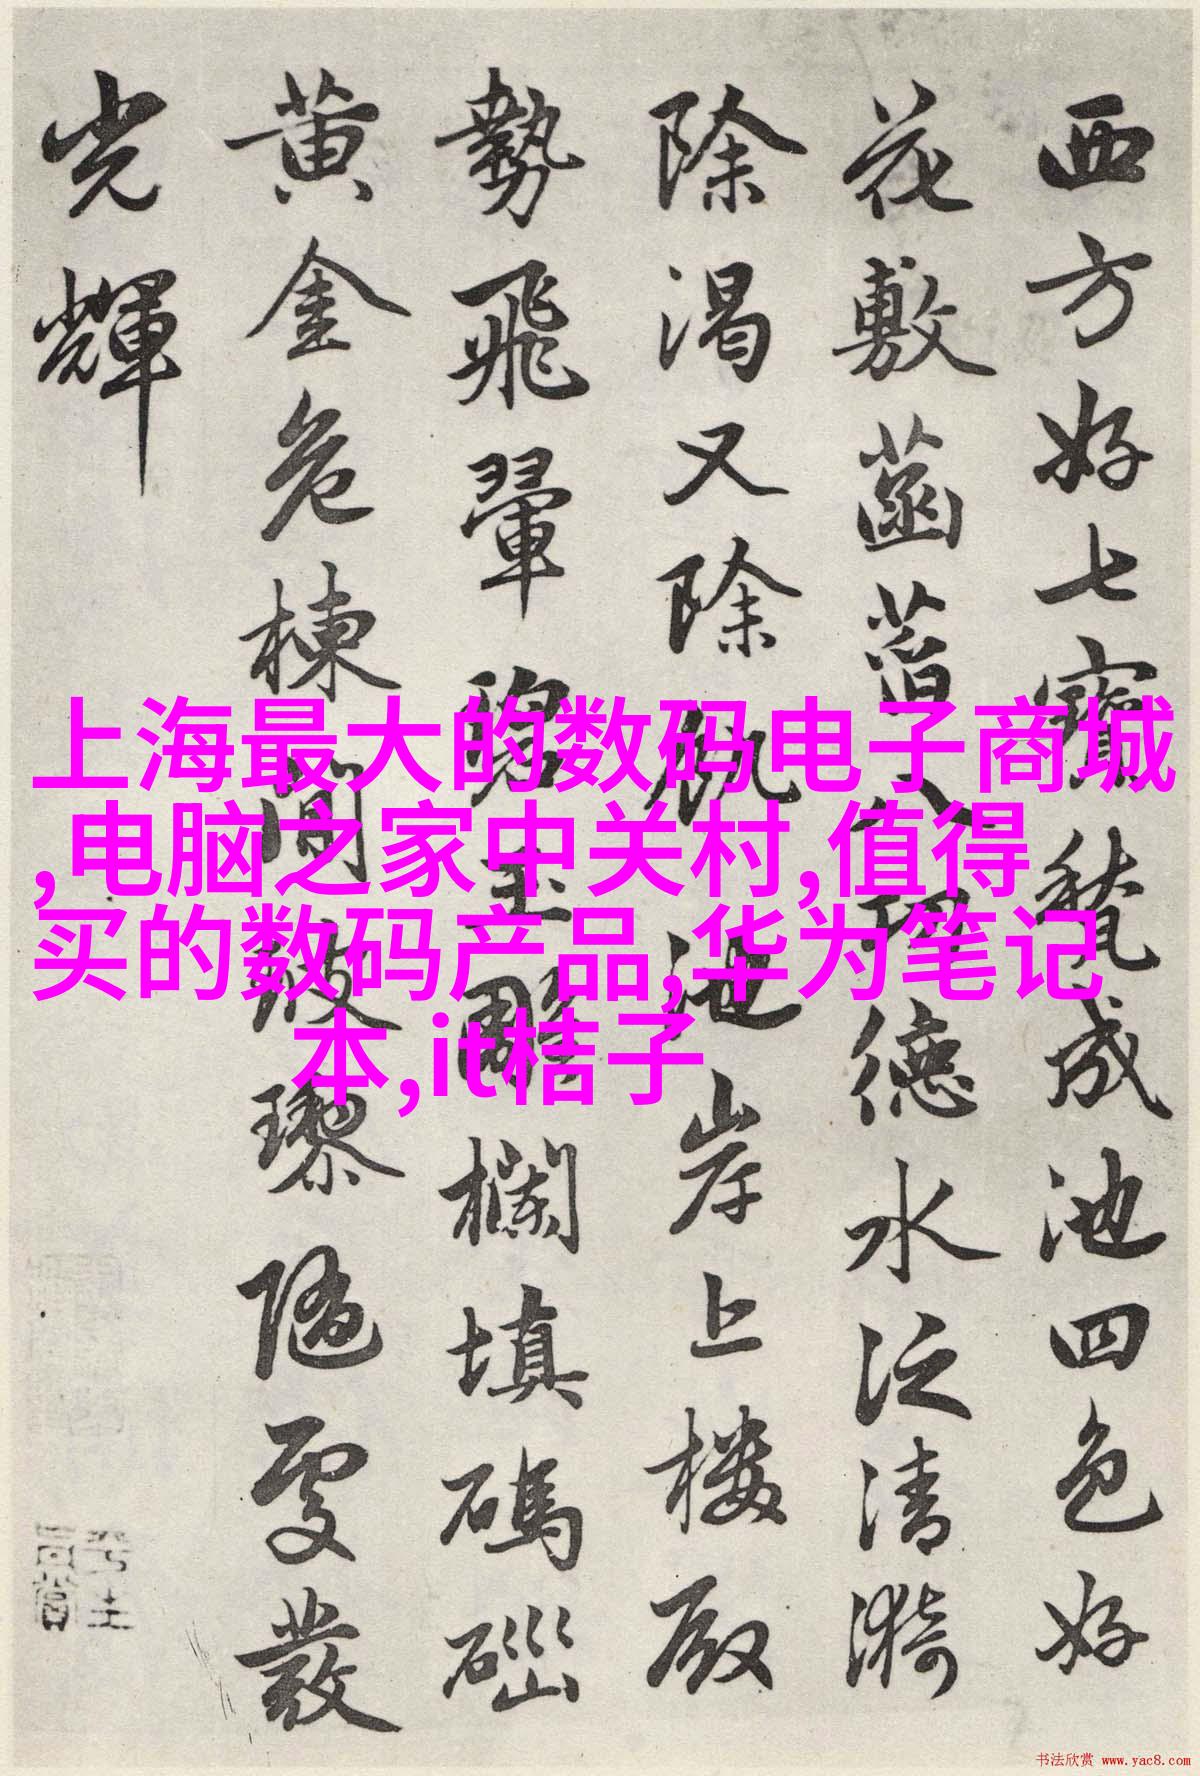 西方好七寶甃成池四色好
花敷菡萏八功德水泛清漪
除渴又除飢池岸上樓殿
勢飛翬碧玉雕欄填碼碯
黄金危棟間玻瓈隨處發
光輝
上海最大的数码电子商城
,电脑之家中关村,值得
买的数码产品,华为笔记
本,it桔子
书法欣赏 www.yac8.com